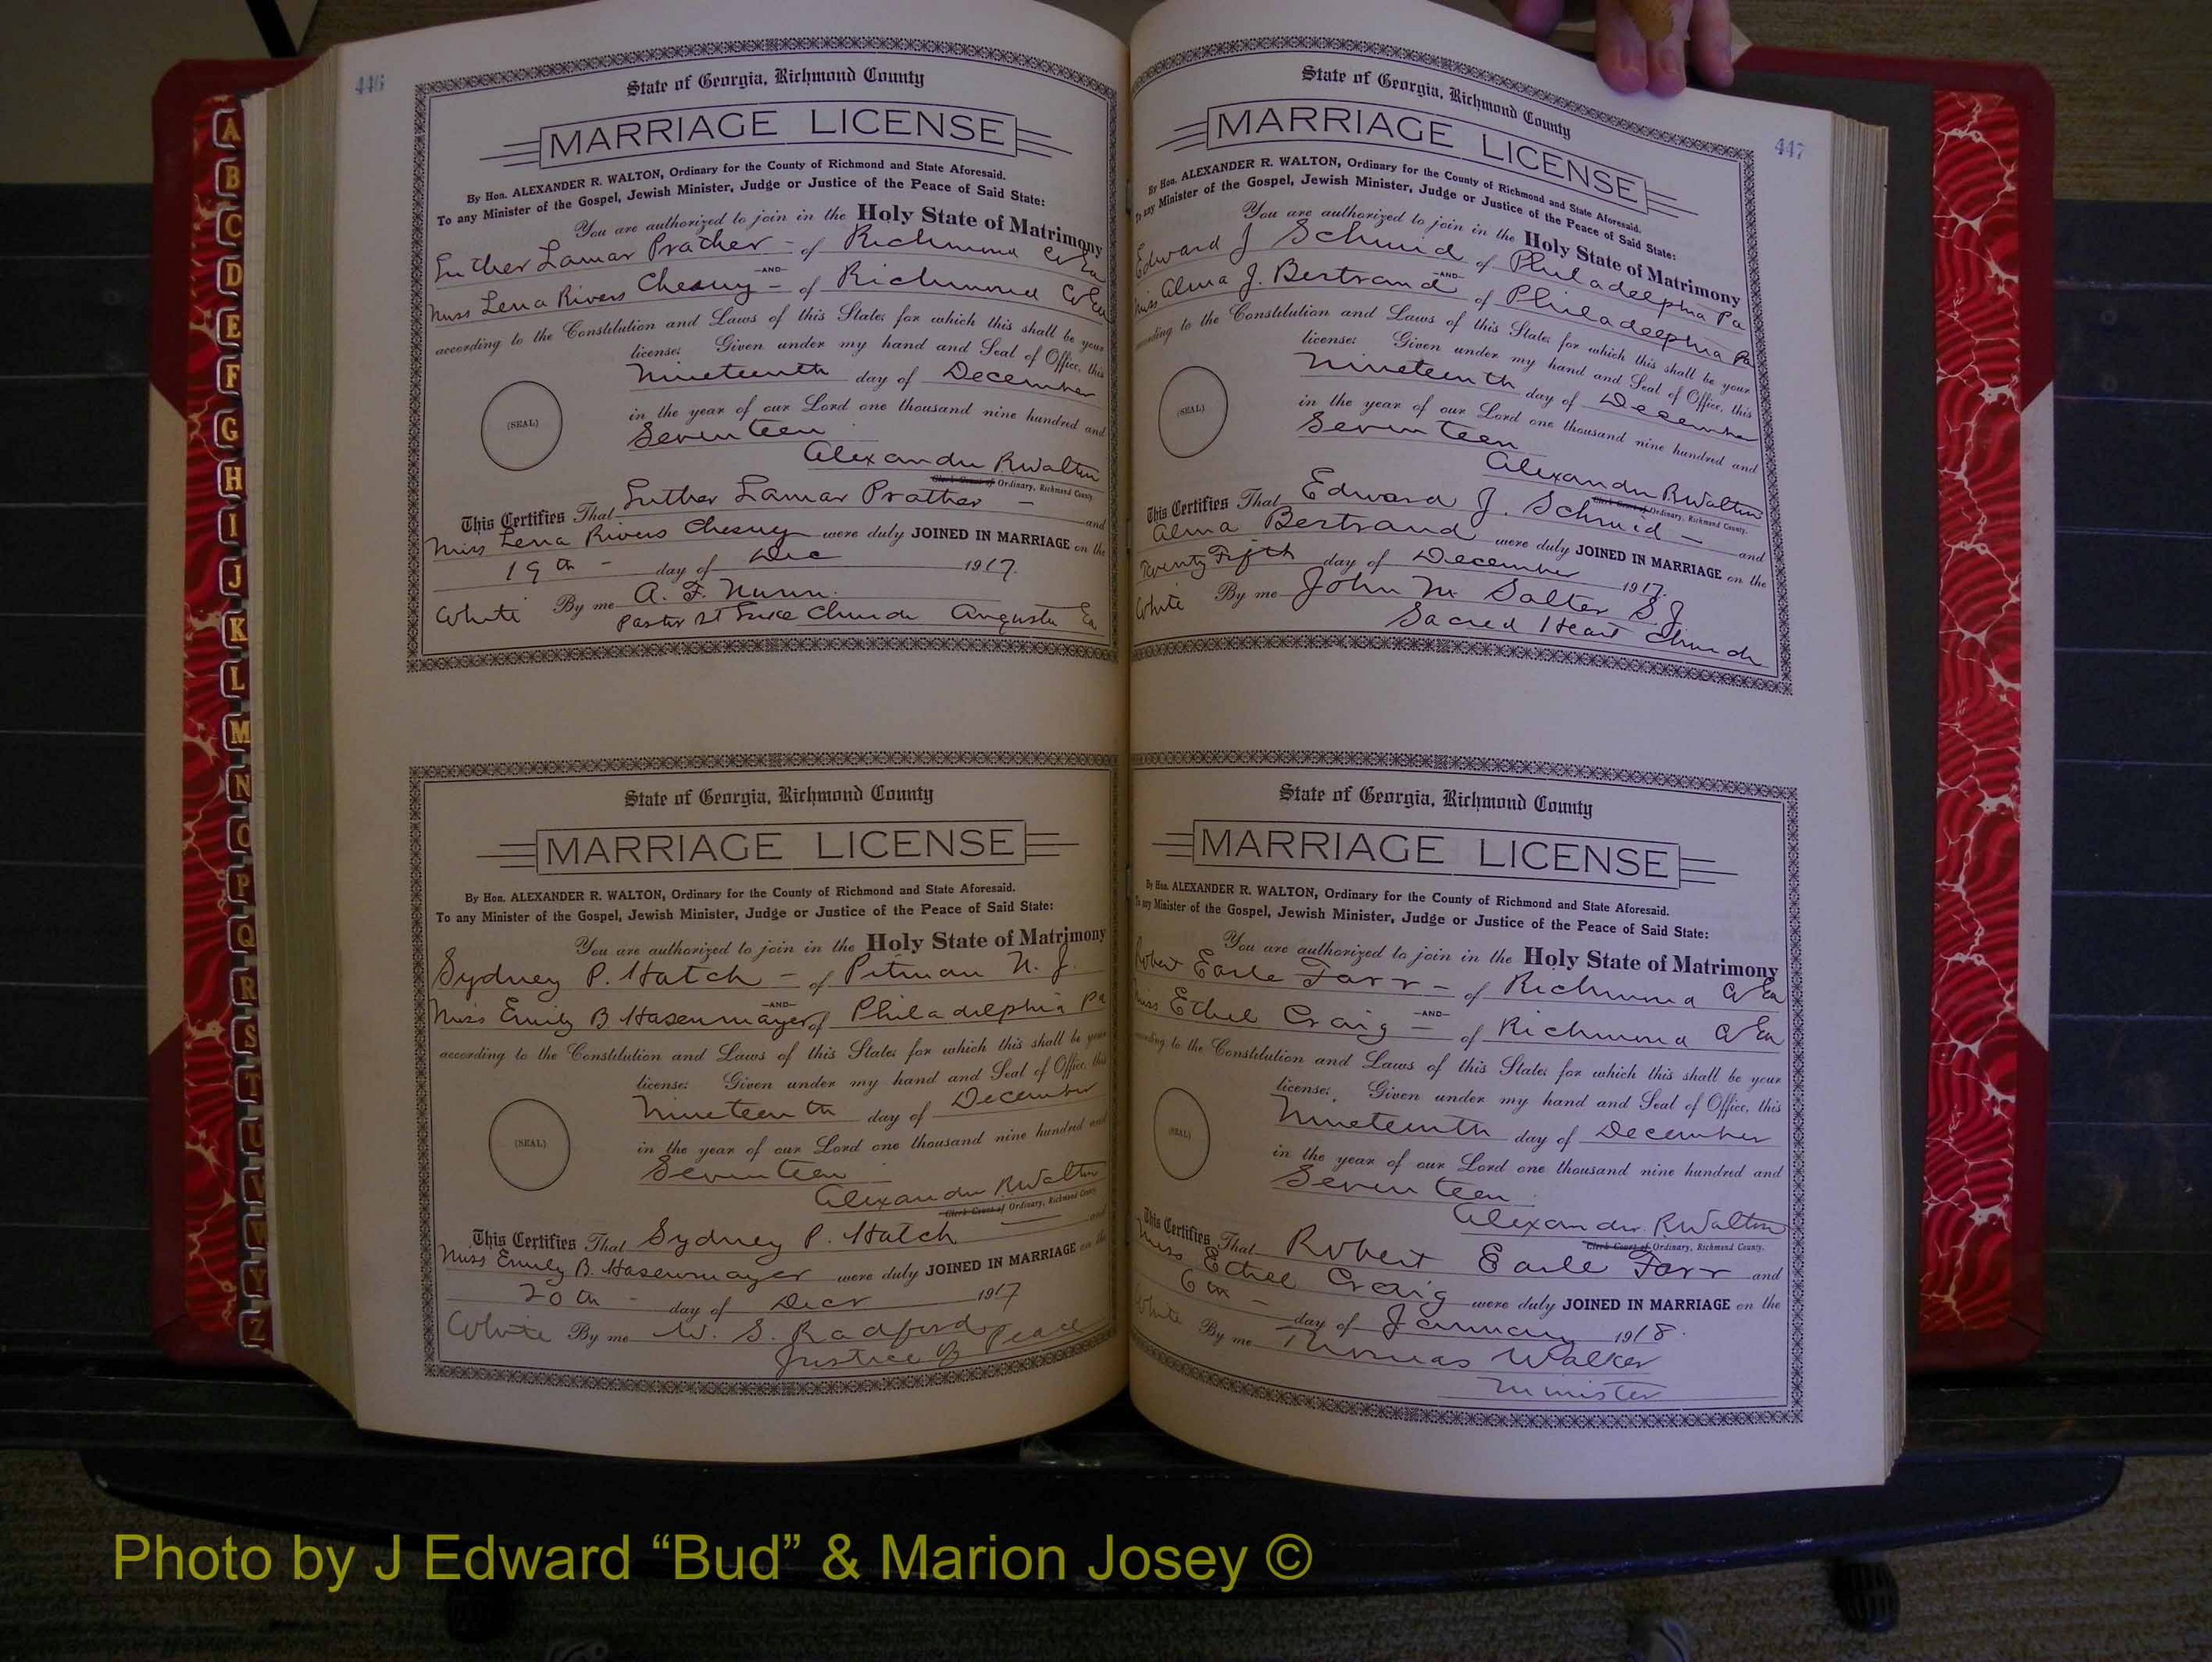 446
State of Georgia, Richmond County
MARRIAGE LICENSE
By Hon. ALEXANDER R. WALTON, Ordinary for the County of Richmond and State Aforesaid.
To any Minister of the Gospel, Jewish Minister, Judge or Justice of the Peace of Said State:
You are authorized to join in the Holy State of Matrimony
Luther Lamar Prather - of Richmond Co Ga
-AND-
Miss Lena Rivers Chesuy - of Richmond Co Ga
according to the Constitution and Laws of this State; for which this shall be your
license: Given under my hand and Seal of Office, this
Nineteenth day of December
(SEAL)
in the year of our Lord one thousand nine hundred and
Seventeen
Alexander R Walton
Clerk Court of Ordinary, Richmond County
This Certifies That Luther Lamar Prather - and
Miss Lena Rivers Chesuy were duly JOINED IN MARRIAGE on the
19th - day of Dec 1917.
White By me A. F. Nunn.
Pastor St Luke Church Augusta Ga
State of Georgia, Richmond County
MARRIAGE LICENSE
By Hon. ALEXANDER R. WALTON, Ordinary for the County of Richmond and State Aforesaid.
To any Minister of the Gospel, Jewish Minister, Judge or Justice of the Peace of Said State:
You are authorized to join in the Holy State of Matrimony
Sydney P. Hatch - of Pitman N. J.
-AND-
Miss Emily B Hasenmayer of Philadelphia Pa
according to the Constitution and Laws of this State; for which this shall be your
license: Given under my hand and Seal of Office, this
Nineteenth day of December
(SEAL)
in the year of our Lord one thousand nine hundred and
Seventeen
Alexander R Walton
Clerk Court of Ordinary, Richmond County
This Certifies That Sydney P. Hatch and
Miss Emily B. Hasenmayer were duly JOINED IN MARRIAGE on the
20th - day of Decr 1917
White By me W. S. Radford
Justice of Peace
447
State of Georgia, Richmond County
MARRIAGE LICENSE
By Hon. ALEXANDER R. WALTON, Ordinary for the County of Richmond and State Aforesaid.
To any Minister of the Gospel, Jewish Minister, Judge or Justice of the Peace of Said State:
You are authorized to join in the Holy State of Matrimony
Edward J Schmid of Philadelphia Pa
-AND-
Miss Alma J. Bertrand of Philadelphia Pa
according to the Constitution and Laws of this State; for which this shall be your
license: Given under my hand and Seal of Office, this
Nineteenth day of December
(SEAL)
in the year of our Lord one thousand nine hundred and
Seventeen
Alexander R Walton
Clerk Court of Ordinary, Richmond County.
This Certifies That Edward J. Schmid - and
Alma Bertrand were duly JOINED IN MARRIAGE on the
Twenty Fifth day of December 1917.
White By me John M Salter S J
Sacred Heart Church
State of Georgia, Richmond County
MARRIAGE LICENSE
By Hon. ALEXANDER R. WALTON, Ordinary for the County of Richmond and State Aforesaid.
To any Minister of the Gospel, Jewish Minister, Judge or Justice of the Peace of Said State:
You are authorized to join in the Holy State of Matrimony
Robert Earle Farr - of Richmond Co Ga
-AND-
Miss Ethel Craig - of Richmond Co Ga
according to the Constitution and Laws of this State; for which this shall be your
license: Given under my hand and Seal of Office, this
Nineteenth day of December
(SEAL)
in the year of our Lord one thousand nine hundred and
Seventeen
Alexander R Walton
Clerk Court of Ordinary, Richmond County.
This Certifies That Robert Earle Farr and
Miss Ethel Craig were duly JOINED IN MARRIAGE on the
6th - day of January 1918.
White By me Thomas Walker
Minister
A
B
C
D
E
F
G
H
I
J
K
L
M
N
O
P
Q
R
S
T
U
V
W
Y
Z
Photo by J Edward “Bud” & Marion Josey ©